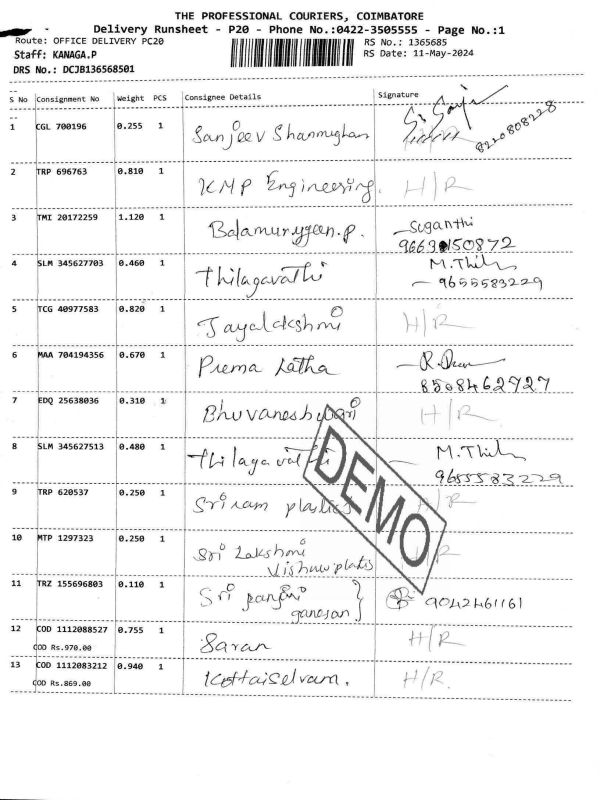 THE PROFESSIONAL COURIERS, COIMBATORE
Delivery Runsheet - P20 - Phone No.:0422-3505555 - Page No.:1
Route: OFFICE DELIVERY PC20
RS No.: 1365685
Staff: KANAGA.P
RS Date: 11-May-2024
DRS No.: DCJB136568501
S No Consignment No Weight PCS Consignee Details Signature
8220808228
1 CGL 700196 0.255 1 Sanjeev Shanmughan
2 TRP 696763 0.810 1 KMP Engineering. H/R
3 TMI 20172259 1.120 1 Balamurugan.p. Suganthi
9663150872
4 SLM 345627703 0.460 1 Thilagavathi M.Thil
9655583229
5 TCG 40977583 0.820 1 Jayalakshmi H/R
6 MAA 704194356 0.670 1 Prema Latha
8508462927
7 EDQ 25638036 0.310 1 Bhuvaneshwari H/R
8 SLM 345627513 0.480 1 Thilagavathi M.Thil
9655583229
9 TRP 620537 0.250 1 Sriram plastics H/R
10 MTP 1297323 0.250 1 Sri Lakshmi H/R
11 TRZ 155696803 0.110 1 Sri 9042461161
ganesan
12 COD 1112088527 0.755 1 Saran H/R
COD Rs.970.00
13 COD 1112083212 0.940 1 Kottaiselvam. H/R.
COD Rs.869.00
DEMO